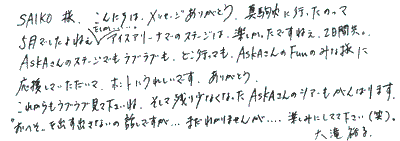 SAIKO 様、こんにちは。メッセージありがとう。真駒内に行ったのって
5月でしたよねぇ アイスアリーナでのステージは、楽しかったですねぇ、2日間共。
ASKAさんのステージでもラブラブも、どこ行っても、ASKAさんのFunのみな様に
応援していただいて、ホントにうれしいです。ありがとう。
これからもラブラブ見て下さいね、そして残り少なくなったASKAさんのツアーもがんばります。
を出す出さないの話しですが… まだわかりませんが…. 楽しみにしてて下さい(笑)。
大滝裕子